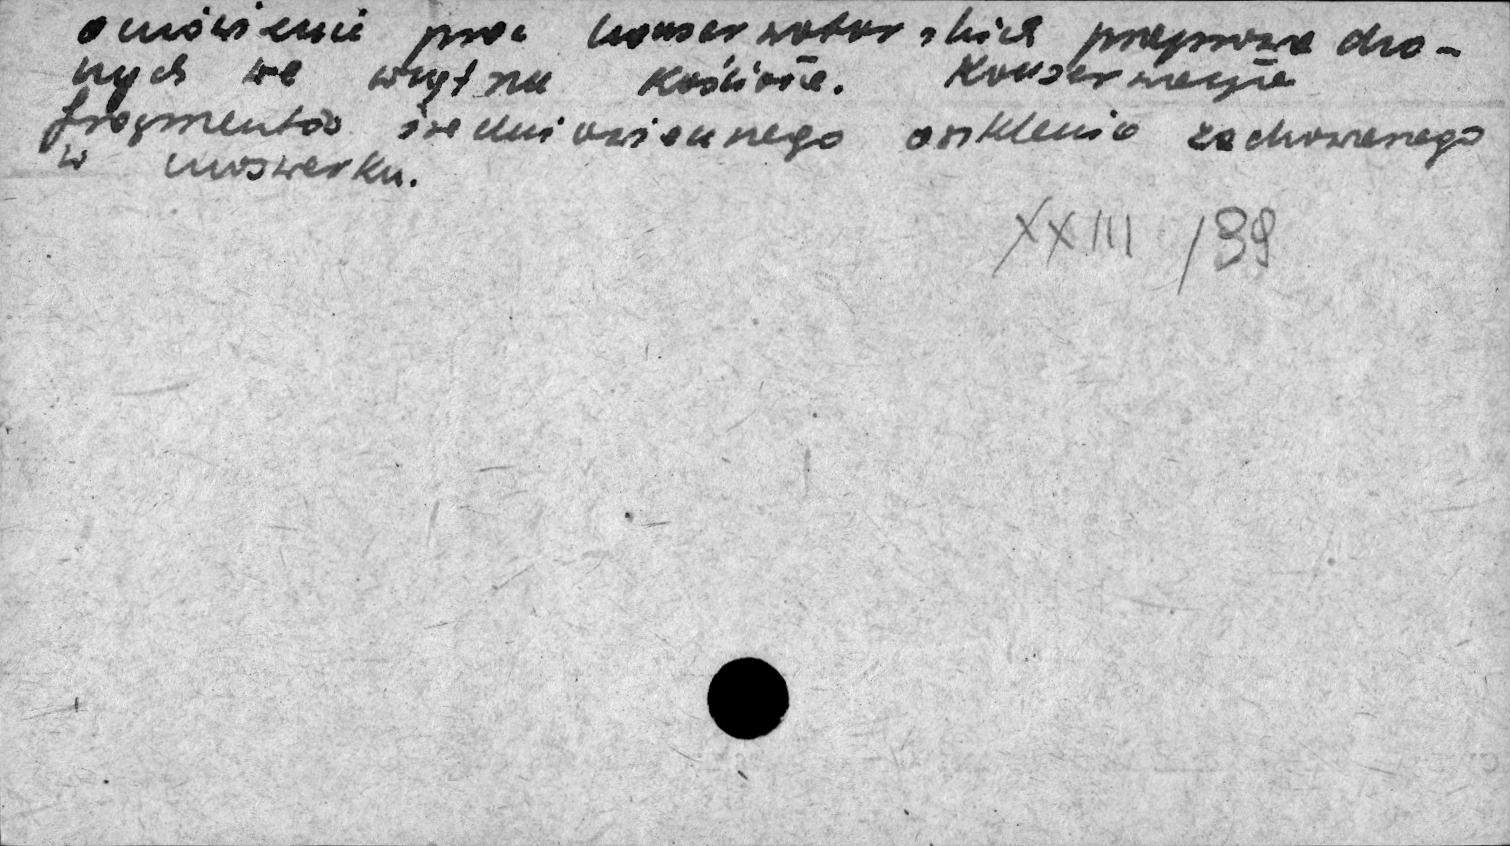 omówienie prac konserwatorskich przeprowadzo-
nych we wnętrzu kościoła. Konserwacja
fragmentów średniowiecznego oszklenia zachowanego
w maswerku.
XXIII /89